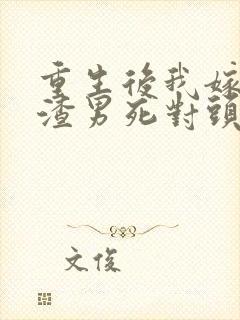 重生後我嫁
渣男死對頭
文俊